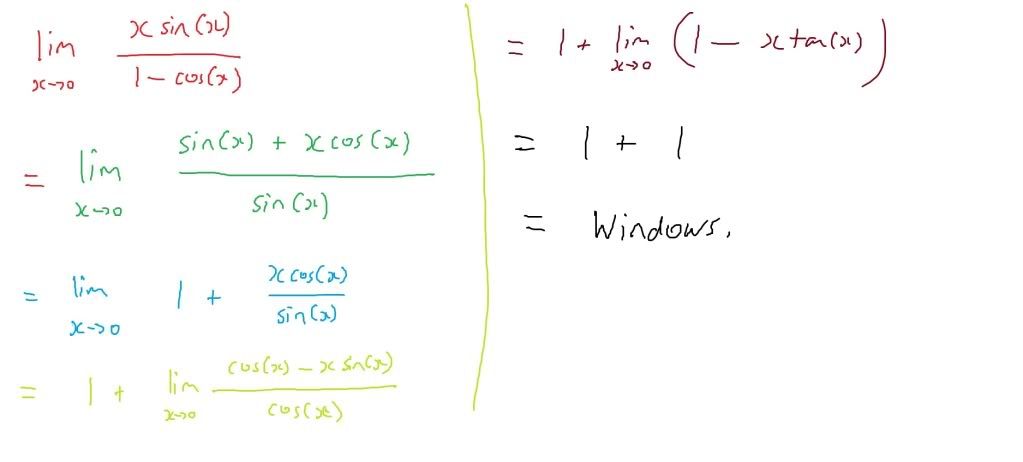 lim x→0 x sin(x) / 1 − cos(x)
= lim x→0 sin(x) + x cos(x) / sin(x)
= lim x→0 1 + x cos(x) / sin(x)
= 1 + lim x→0 cos(x) − x sin(x) / cos(x)
= 1 + lim x→0 (1 − x tan(x))
= 1 + 1
= Windows.